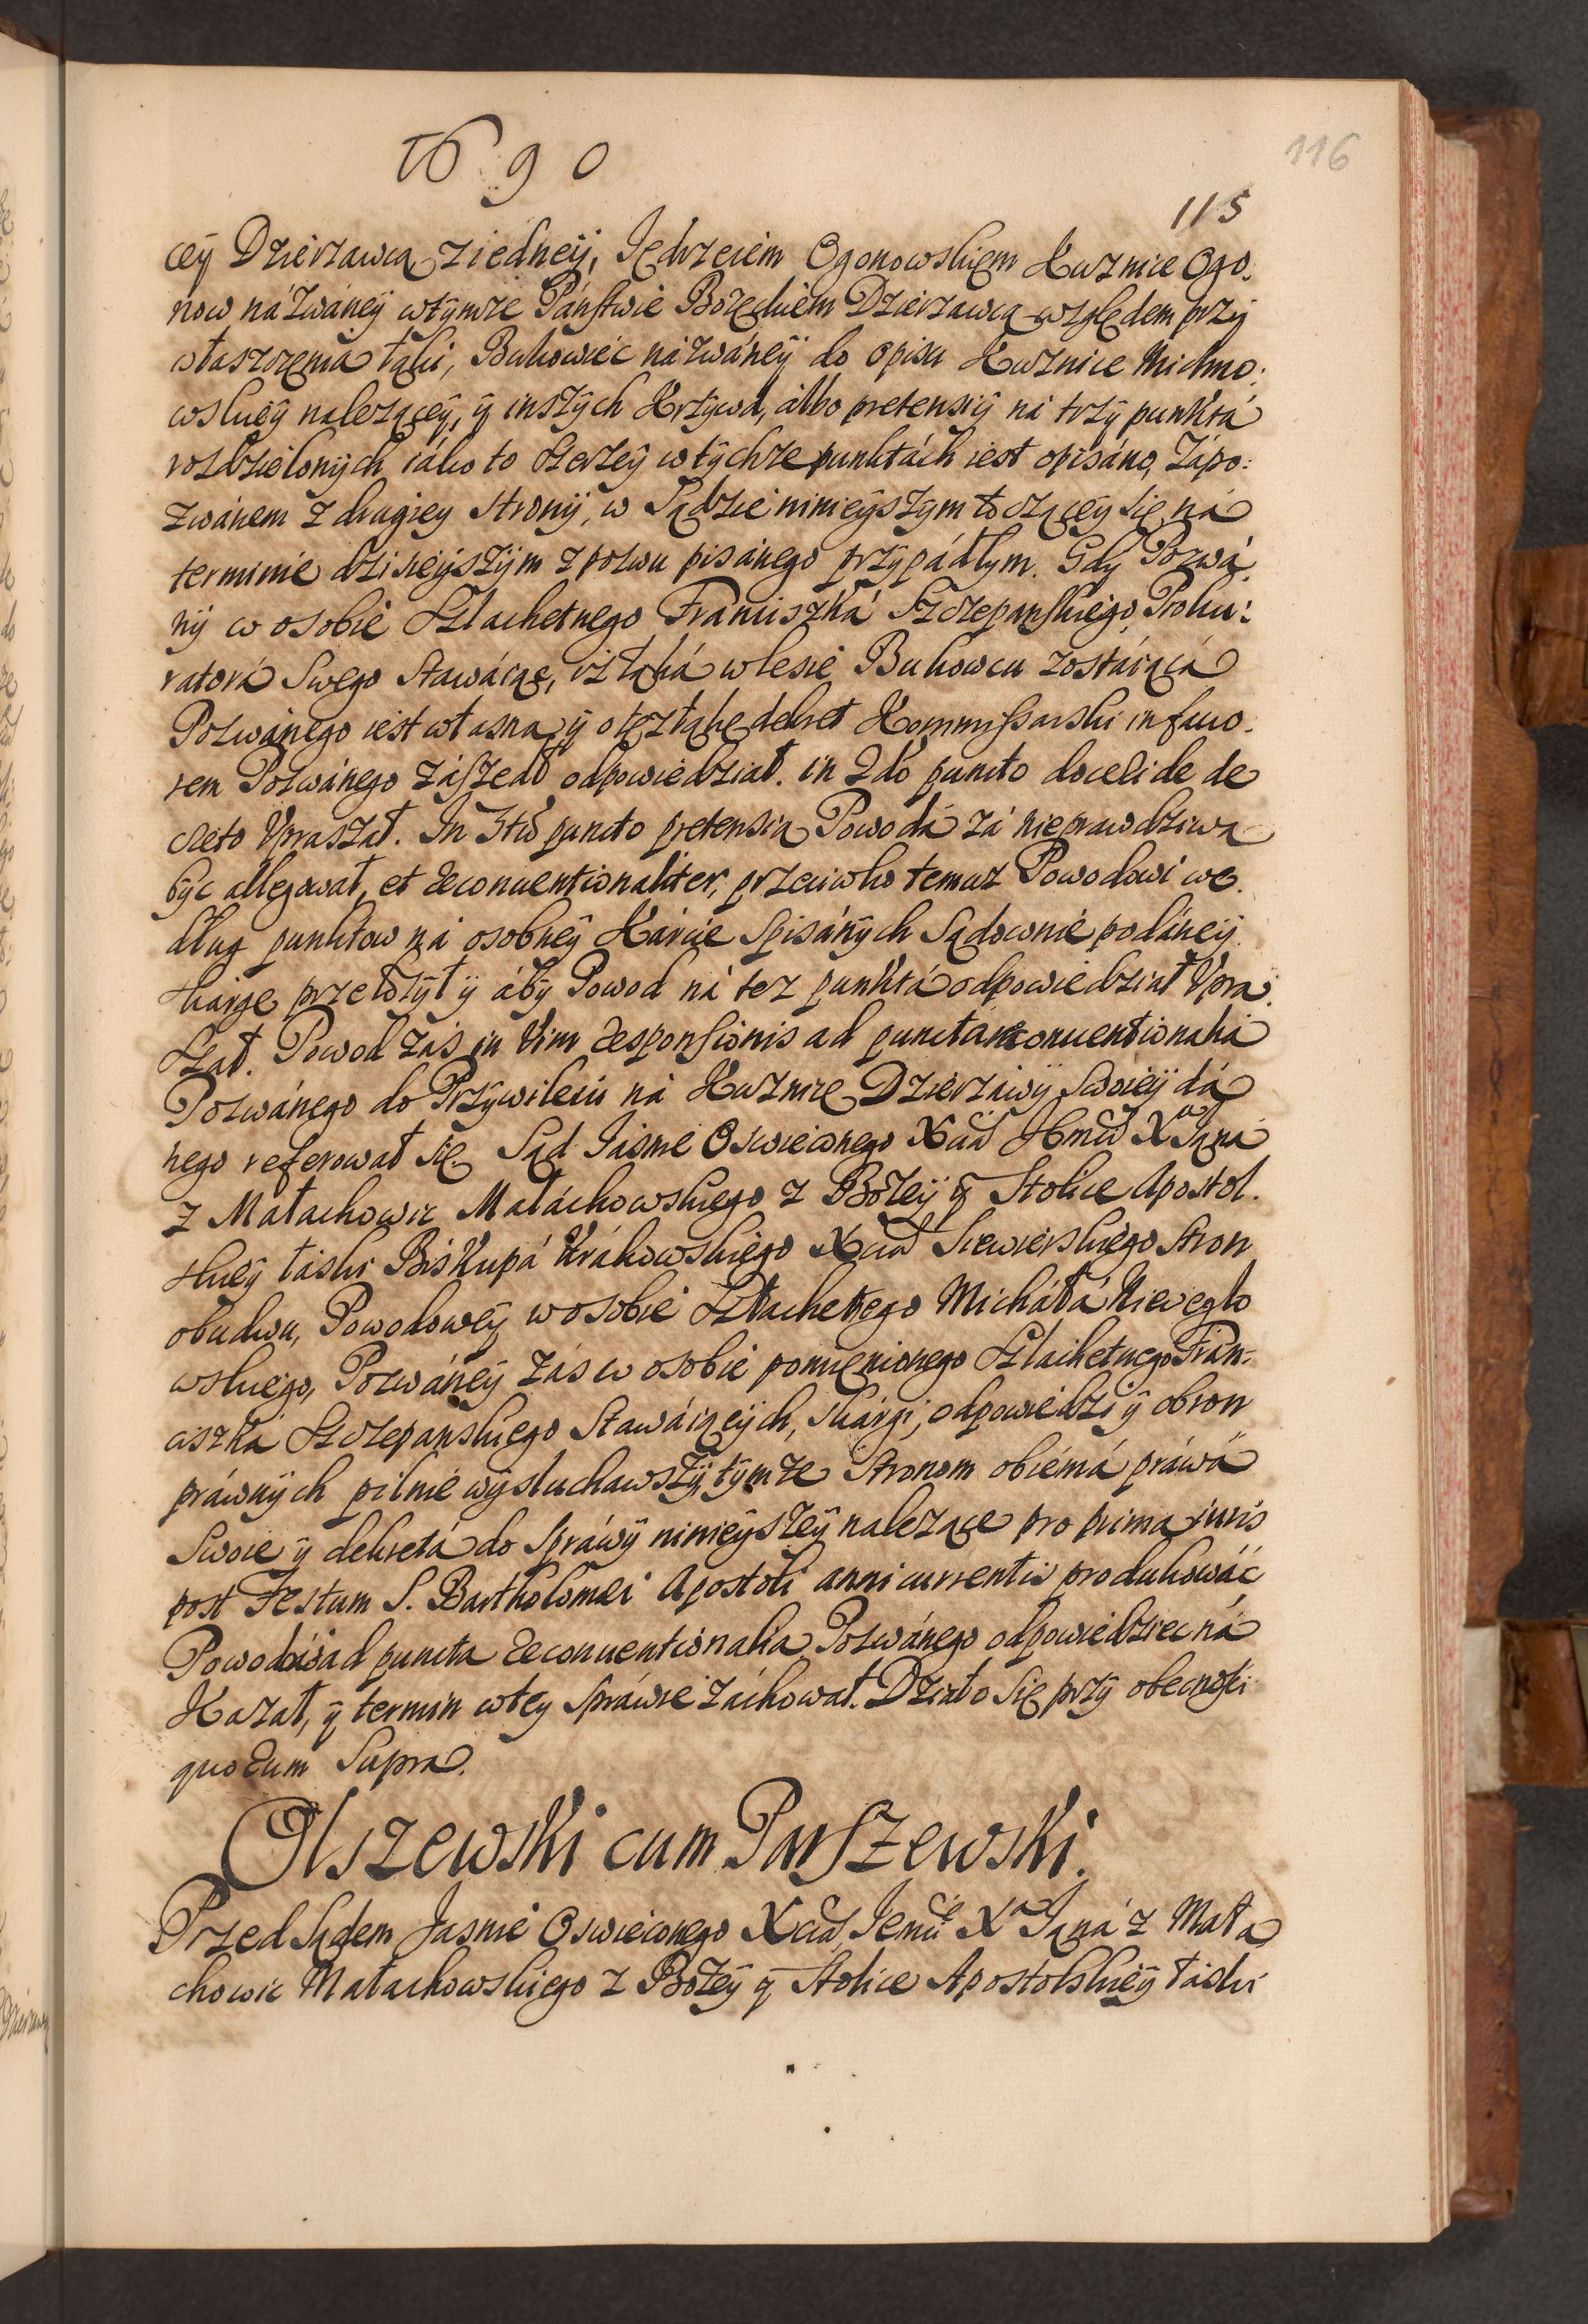 1690
116
115
cey Dzierzawcą z iedneÿ, Jędrzeiem Ogonowskięm Kuznice Ogo:
now názwáneÿ wtÿmze Páństwie Bozęckiem Dzierzawcą względem przÿ
własczęnia łąki, Bukowiec názwáneÿ do opisu Kuznice Michno:
wskieÿ nalezącęÿ, ÿ inszÿch Krzÿwd, álbo pretensiÿ ná trzÿ punktá
rozdzielonÿch iáko to szerzeÿ wtÿchze punktách iest opisáno, Zápo:
zwánem z drugiey stronÿ, w Sądzie ninieÿszÿm toczącęÿ się ná
terminie dzisieÿszÿm z pozwu pisánego przÿpádłym. Gdy Pozwá:
nÿ w osobie Szlachetnego Fránciszká Szczepańskiego, Proku:
ratorá Swego Stawáiąc, isz łąká w lesie Bukowcu zostáiącá
Pozwánego iest własna, ÿ o tęsz łąkę dekret Kommissarski in fauo:
rem Pozwánego zászedł odpowiedział. in 2do puncto doceli de de
creto Upraszał. In 3tio puncto pretensią Powodá zá nieprawdziwą
bÿc allegował, et reconuentionaliter, przeciwko temuz Powodowi we:
dług punktow ná osobneÿ Kárcie spisánÿch Sądownie podáneÿ
skárgę przełozÿł ÿ ábÿ Powod ná tez punktá odpowiedział Uprá:
szał. Powod zás in Vim responsionis ad puncta reconuentionalia
Pozwánego do Przÿwileiu ná Kuznicę Dzierzáwÿ Swoieÿ dá
nego referował się. Sąd Jásnie Oswieconego Xcia Jmci Xa Jana
z Małachowic Máłáchowskiego z Bozeÿ ÿ Stolice Apostol:
skieÿ łáski Biskupá Krákowskiego Xcia Siewierskiego Stron
obudwu, Powodoweÿ w osobie Szlachetnego Micháłá Nieveglo
wskiego, Pozwáneÿ zás w osobie pomięnionego Szlachetnego Frán:
ciszká Szczepanskiego Stawáiącÿch, skárgi, odpowiedzi ÿ obron
práwnÿch pilnie wÿsłuchawszÿ, tÿmze Stronom obiemá práwá
Swoie ÿ dekretá do Spráwÿ ninieÿszeÿ nalezące pro prima iuris
post Festum S. Bartholomæi Apostoli anni currentis produkowác
Powodowi ad puncta reconuentionalia Pozwánego odpowiedziec ná
Kazał, ÿ termin w teÿ Spráwie záchował. Działo się przÿ obecnosci
quorum Supra.
Olszewski cum Parszewski.
Przed Sądem Jasnie Oswieconego Xcia, Jemci Xa Jana z Mała
chowic Małachowskiego z Bozeÿ ÿ Stolice Apostolskieÿ łáski